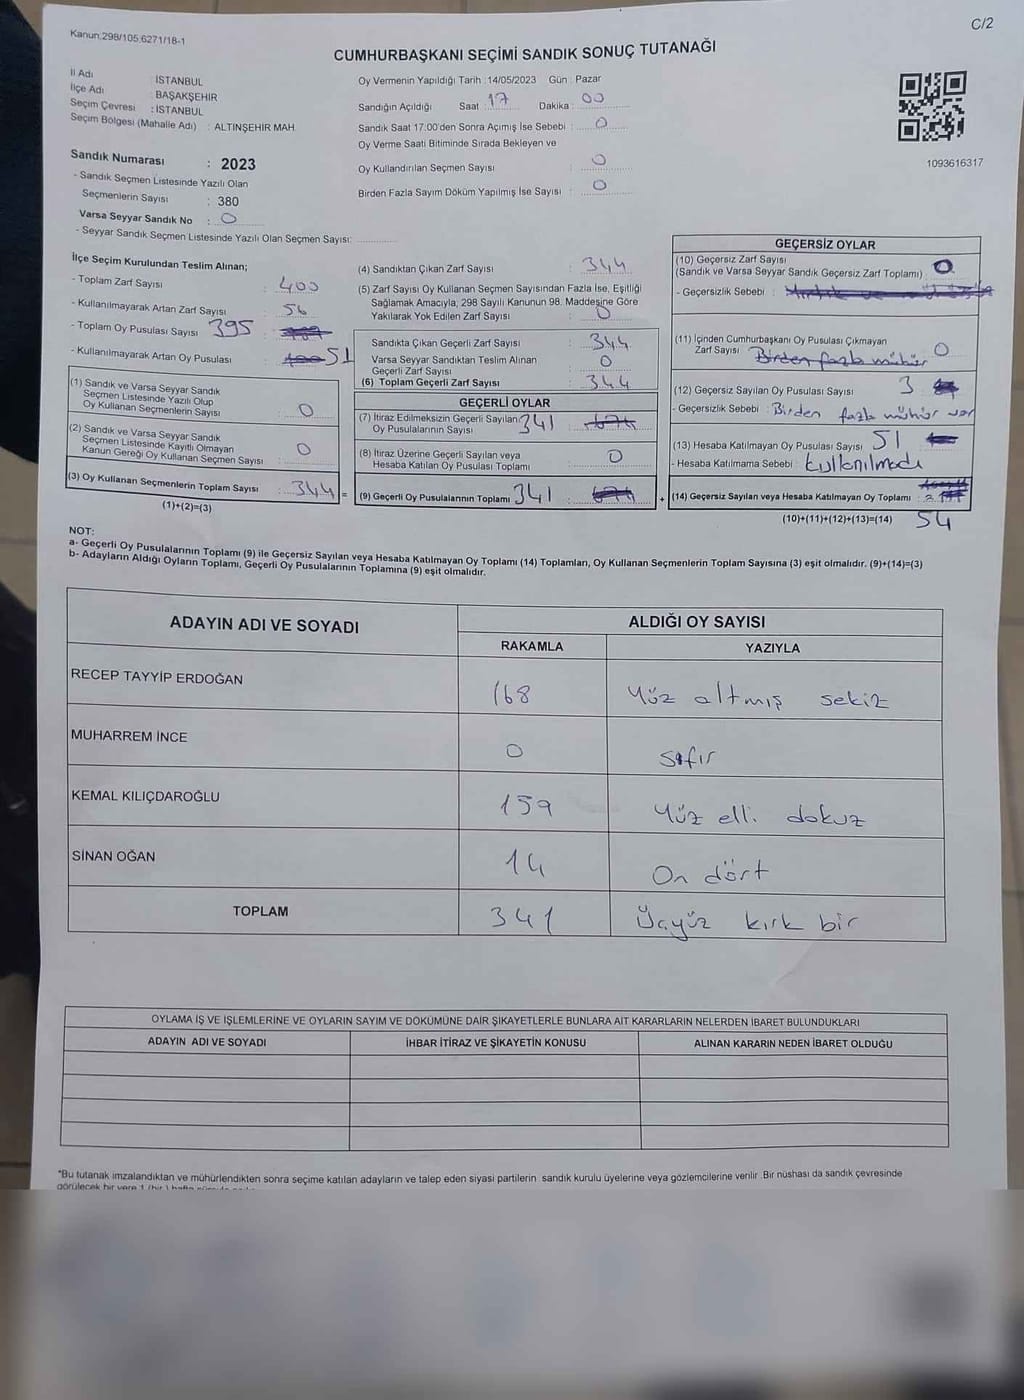 C/2
Kanun:298/105;6271/18-1
CUMHURBAŞKANI SEÇİMİ SANDIK SONUÇ TUTANAĞI
İl Adı : İSTANBUL
İlçe Adı : BAŞAKŞEHİR
Seçim Çevresi : İSTANBUL
Seçim Bölgesi (Mahalle Adı) : ALTINŞEHİR MAH.
Sandık Numarası : 2023
- Sandık Seçmen Listesinde Yazılı Olan
Seçmenlerin Sayısı : 380
Varsa Seyyar Sandık No : 0
- Seyyar Sandık Seçmen Listesinde Yazılı Olan Seçmen Sayısı:
Oy Vermenin Yapıldığı Tarih :14/05/2023 Gün : Pazar
Sandığın Açıldığı Saat 17 Dakika 00
Sandık Saat 17:00'den Sonra Açımış İse Sebebi : 0
Oy Verme Saati Bitiminde Sırada Bekleyen ve
Oy Kullandırılan Seçmen Sayısı : 0
Birden Fazla Sayım Döküm Yapılmış İse Sayısı : 0
1093616317
İlçe Seçim Kurulundan Teslim Alınan;
- Toplam Zarf Sayısı : 400
- Kullanılmayarak Artan Zarf Sayısı : 56
- Toplam Oy Pusulası Sayısı 395 :
- Kullanılmayarak Artan Oy Pusulası : 51
(1) Sandık ve Varsa Seyyar Sandık
Seçmen Listesinde Yazılı Olup
Oy Kullanan Seçmenlerin Sayısı : 0
(2) Sandık ve Varsa Seyyar Sandık
Seçmen Listesinde Kayıtlı Olmayan
Kanun Gereği Oy Kullanan Seçmen Sayısı : 0
(3) Oy Kullanan Seçmenlerin Toplam Sayısı : 344 =
(1)+(2)=(3)
(4) Sandıktan Çıkan Zarf Sayısı : 344
(5) Zarf Sayısı Oy Kullanan Seçmen Sayısından Fazla İse, Eşitliği
Sağlamak Amacıyla, 298 Sayılı Kanunun 98. Maddesine Göre
Yakılarak Yok Edilen Zarf Sayısı : 0
Sandıkta Çıkan Geçerli Zarf Sayısı : 344
Varsa Seyyar Sandıktan Teslim Alınan
Geçerli Zarf Sayısı : 0
(6) Toplam Geçerli Zarf Sayısı : 344
GEÇERLİ OYLAR
(7) İtiraz Edilmeksizin Geçerli Sayılan 341
Oy Pusulalarının Sayısı
(8) İtiraz Üzerine Geçerli Sayılan veya
Hesaba Katılan Oy Pusulası Toplamı : 0
(9) Geçerli Oy Pusulalarının Toplamı 341 : +
GEÇERSİZ OYLAR
(10) Geçersiz Zarf Sayısı
(Sandık ve Varsa Seyyar Sandık Geçersiz Zarf Toplamı) : 0
- Geçersizlik Sebebi :
(11) İçinden Cumhurbaşkanı Oy Pusulası Çıkmayan
Zarf Sayısı : Birden fazla mühür 0
(12) Geçersiz Sayılan Oy Pusulası Sayısı : 3
- Geçersizlik Sebebi : Birden fazla mühür var
(13) Hesaba Katılmayan Oy Pusulası Sayısı : 51
- Hesaba Katılmama Sebebi : kullanılmadı
(14) Geçersiz Sayılan veya Hesaba Katılmayan Oy Toplamı :
(10)+(11)+(12)+(13)=(14) 54
NOT:
a- Geçerli Oy Pusulalarının Toplamı (9) ile Geçersiz Sayılan veya Hesaba Katılmayan Oy Toplamı (14) Toplamları, Oy Kullanan Seçmenlerin Toplam Sayısına (3) eşit olmalıdır. (9)+(14)=(3)
b- Adayların Aldığı Oyların Toplamı, Geçerli Oy Pusulalarının Toplamına (9) eşit olmalıdır.
ADAYIN ADI VE SOYADI ALDIĞI OY SAYISI
RAKAMLA YAZIYLA
RECEP TAYYİP ERDOĞAN 168 Yüz altmış sekiz
MUHARREM İNCE 0 sıfır
KEMAL KILIÇDAROĞLU 159 Yüz elli dokuz
SİNAN OĞAN 14 On dört
TOPLAM 341 Üçyüz kırk bir
OYLAMA İŞ VE İŞLEMLERİNE VE OYLARIN SAYIM VE DÖKÜMÜNE DAİR ŞİKAYETLERLE BUNLARA AİT KARARLARIN NELERDEN İBARET BULUNDUKLARI
ADAYIN ADI VE SOYADI İHBAR İTİRAZ VE ŞİKAYETİN KONUSU ALINAN KARARIN NEDEN İBARET OLDUĞU
*Bu tutanak imzalandıktan ve mühürlendikten sonra seçime katılan adayların ve talep eden siyasi partilerin sandık kurulu üyelerine veya gözlemcilerine verilir. Bir nüshası da sandık çevresinde
görülecek bir yere 1 (bir) hafta